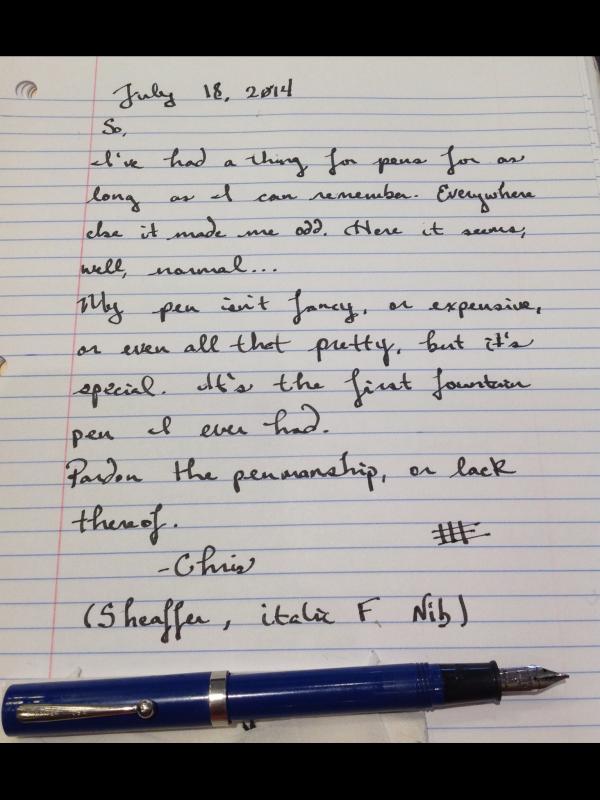 July 18, 2014
So,
I've had a thing for pens for as
long as I can remember. Everywhere
else it made me odd. Here it seems,
well, normal...
My pen isn't fancy, or expensive,
or even all that pretty, but it's
special. It's the first fountain
pen I ever had.
Pardon the penmanship, or lack
thereof.
-Chris
(Sheaffer, italic F Nib)